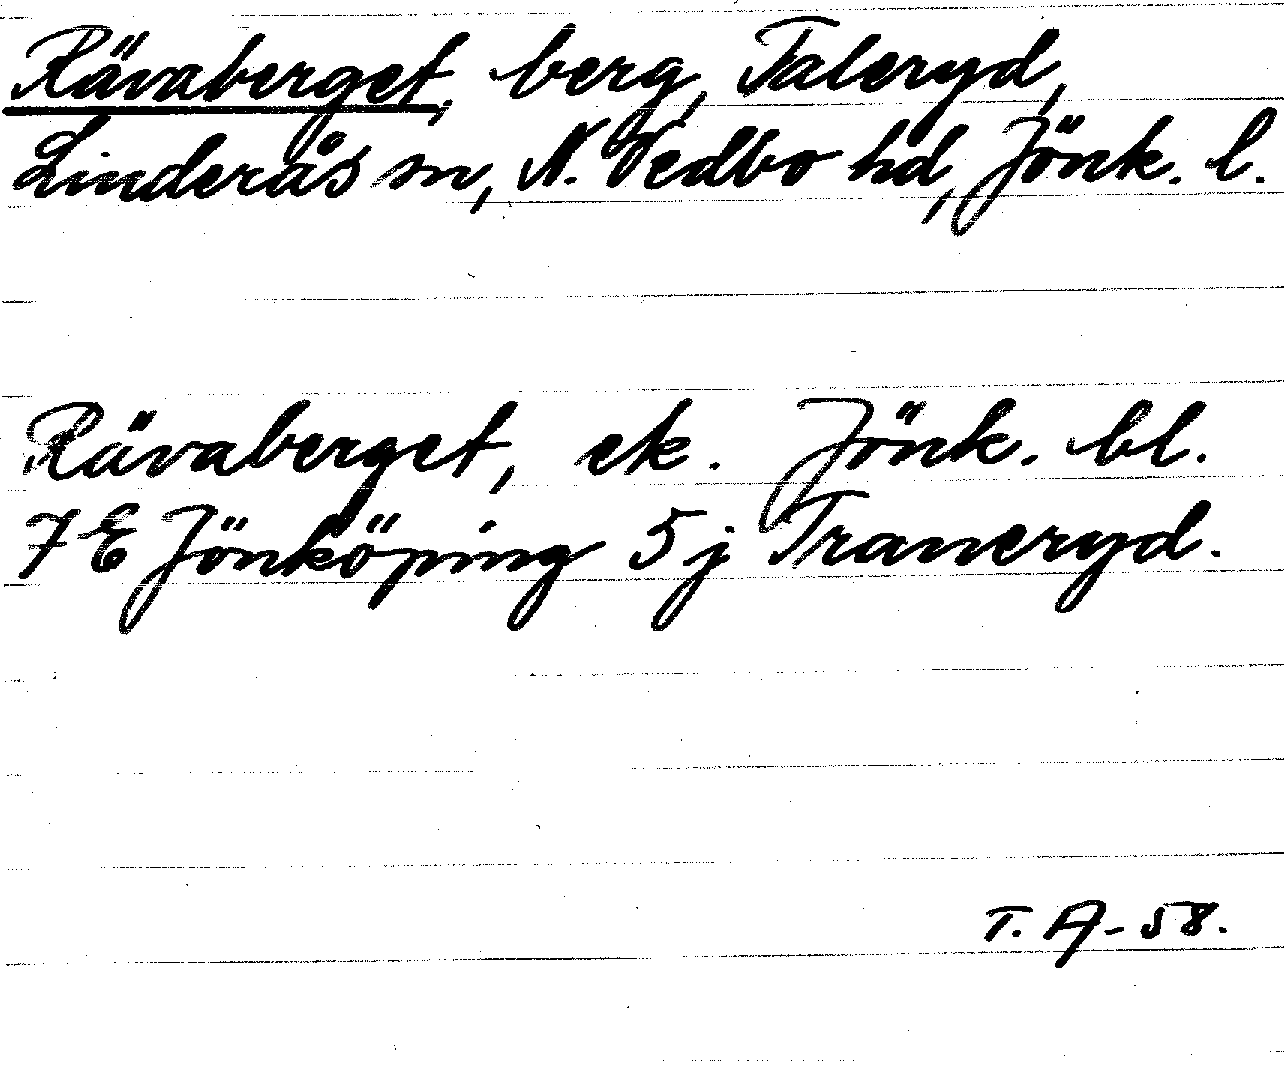 Rävaberget, berg, Taleryd,
Linderås sn, N. Vedbo hd, Jönk. l.
Rävaberget, ek. Jönk. bl.
7 E Jönköping 5 j Traneryd.
T. A-58.